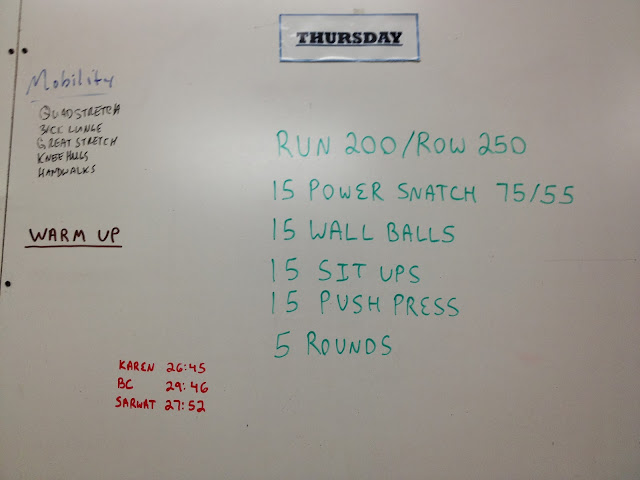 THURSDAY
Mobility
QUADSTRETCH
BACK LUNGE
GREAT STRETCH
KNEE HUGS
HANDWALKS
WARM UP
RUN 200/ROW 250
15 POWER SNATCH 75/55
15 WALL BALLS
15 SIT UPS
15 PUSH PRESS
5 ROUNDS
KAREN 26:45
BC 29:46
SARWAT 27:52